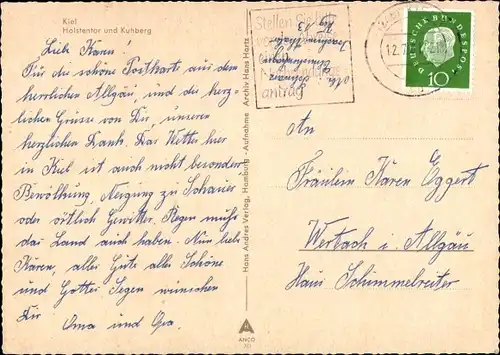 Kiel
Holstentor und Kuhberg
Liebe Karen!
Für die schöne Postkarte aus dem
herrlichen Allgäu, und die herz-
lichen Grüsse von Dir, unseren
herzlichen Dank. Das Wetter hier
in Kiel ist auch nicht besonders
Bewölkung, Neigung zu Schauer
oder örtlich Gewitter. Regen muß
das Land auch haben. Nun liebe
Karen, alles Gute alles Schöne
und Gottes Segen wünschen
Dir
Oma und Opa.
Hans Andres Verlag, Hamburg - Aufnahme Archiv Hans Hartz
ANCO
Stellen Sie
antrag
DEUTSCHE BUNDESPOST
10
12.7.
An
Fräulein Karen Eggert
Wertach i. Allgäu
Haus Schimmelreiter